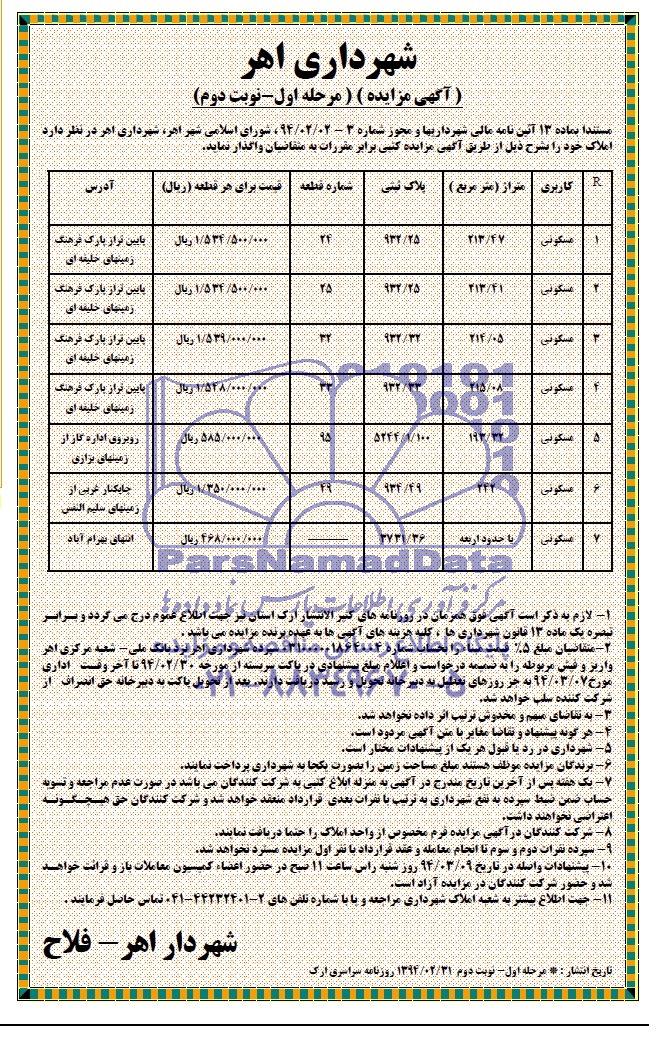 شهرداری اهر
( آگهی مزایده ) ( مرحله اول-نوبت دوم)
مستندا بماده ۱۳ آئین نامه مالی شهرداریها و مجوز شماره ۳ – ۹۴/۰۲/۰۲ ، شورای اسلامی شهر اهر، شهرداری اهر در نظر دارد
املاک خود را بشرح ذیل از طریق آگهی مزایده کتبی برابر مقررات به متقاضیان واگذار نماید.
R کاربری متراژ (متر مربع ) پلاک ثبتی شماره قطعه قیمت برای هر قطعه (ریال) آدرس
۱ مسکونی ۲۱۳/۴۷ ۹۳۲/۲۵ ۲۴ ۱/۵۳۴/۵۰۰/۰۰۰ ریال پایین تراز پارک فرهنگ
زمینهای خلیفه ای
۲ مسکونی ۲۱۳/۴۱ ۹۳۲/۲۵ ۲۵ ۱/۵۳۴/۵۰۰/۰۰۰ ریال پایین تراز پارک فرهنگ
زمینهای خلیفه ای
۳ مسکونی ۲۱۴/۰۵ ۹۳۲/۳۲ ۳۲ ۱/۵۳۹/۰۰۰/۰۰۰ ریال پایین تراز پارک فرهنگ
زمینهای خلیفه ای
۴ مسکونی ۲۱۵/۰۸ ۹۳۲/۳۳ ۳۳ ۱/۵۴۸/۰۰۰/۰۰۰ ریال پایین تراز پارک فرهنگ
زمینهای خلیفه ای
۵ مسکونی ۱۹۳/۳۲ ۵۲۴۴/۱/۱۰۰ ۹۵ ۵۸۵/۰۰۰/۰۰۰ ریال روبروی اداره گاز از
زمینهای بزازی
۶ مسکونی ۲۴۲ ۹۳۴/۴۹ ۴۹ ۱/۳۵۰/۰۰۰/۰۰۰ ریال چایکنار غربی از
زمینهای سلیم النفس
۷ مسکونی با حدود اربعه ۳۷۳۱/۳۶ ——— ۴۶۸/۰۰۰/۰۰۰ ریال انتهای بهرام آباد
ParsNamadData
مرکز فرآوری اطلاعات پارس نماد داده ها
۱- لازم به ذکر است آگهی فوق همزمان در روزنامه های کثیر الانتشار ارک استان نیز جهت اطلاع عموم درج می گردد و برابر
تبصره یک ماده ۱۳ قانون شهرداری ها ، کلیه هزینه های آگهی ها به عهده برنده مزایده می باشد .
۲-متقاضیان مبلغ ۵٪ قیمت پایه را بحساب شماره سپرده شهرداری اهر نزد بانک ملی- شعبه مرکزی اهر
واریز و فیش مربوطه را به ضمیمه درخواست و اعلام مبلغ پیشنهادی در پاکت سربسته از مورخه ۹۴/۰۲/۳۰ تا آخر وقت اداری
مورخ ۹۴/۰۳/۰۷ به جز روزهای تعطیل به دبیرخانه تحویل و رسید دریافت دارند. بعد از تحویل پاکت به دبیرخانه حق انصراف از
شرکت کننده سلب خواهد شد.
۰۲۱-۸۸۳۴۹۶۷۰-۵
۳- به تقاضای مبهم و مخدوش ترتیب اثر داده نخواهد شد.
۴- هر گونه پیشنهاد و تقاضا مغایر با متن آگهی مردود است.
۵- شهرداری در رد یا قبول هر یک از پیشنهادات مختار است.
۶- برندگان مزایده موظف هستند مبلغ مساحت زمین را بصورت یکجا به شهرداری پرداخت نمایند.
۷- یک هفته پس از آخرین تاریخ مندرج در آگهی به منزله ابلاغ کتبی به شرکت کنندگان می باشد در صورت عدم مراجعه و تسویه
حساب ضمن ضبط سپرده به نفع شهرداری به ترتیب با نفرات بعدی قرارداد منعقد خواهد شد و شرکت کنندگان حق هیچگونه
اعتراضی نخواهند داشت.
۸- شرکت کنندگان درآگهی مزایده فرم مخصوص از واحد املاک را حتما دریافت نمایند.
۹- سپرده نفرات دوم و سوم تا انجام معامله و عقد قرارداد با نفر اول مزایده مسترد نخواهد شد.
۱۰- پیشنهادات واصله در تاریخ ۹۴/۰۳/۰۹ روز شنبه راس ساعت ۱۱ صبح در حضور اعضاء کمیسیون معاملات باز و قرائت خواهد
شد و حضور شرکت کنندگان در مزایده آزاد است.
۱۱- جهت اطلاع بیشتر به شعبه املاک شهرداری مراجعه و یا با شماره تلفن های ۲-۴۴۲۳۲۴۰۱-۰۴۱ تماس حاصل فرمایند .
شهردار اهر – فلاح
تاریخ انتشار : * مرحله اول- نوبت دوم ۱۳۹۴/۰۲/۳۱ روزنامه سراسری ارک